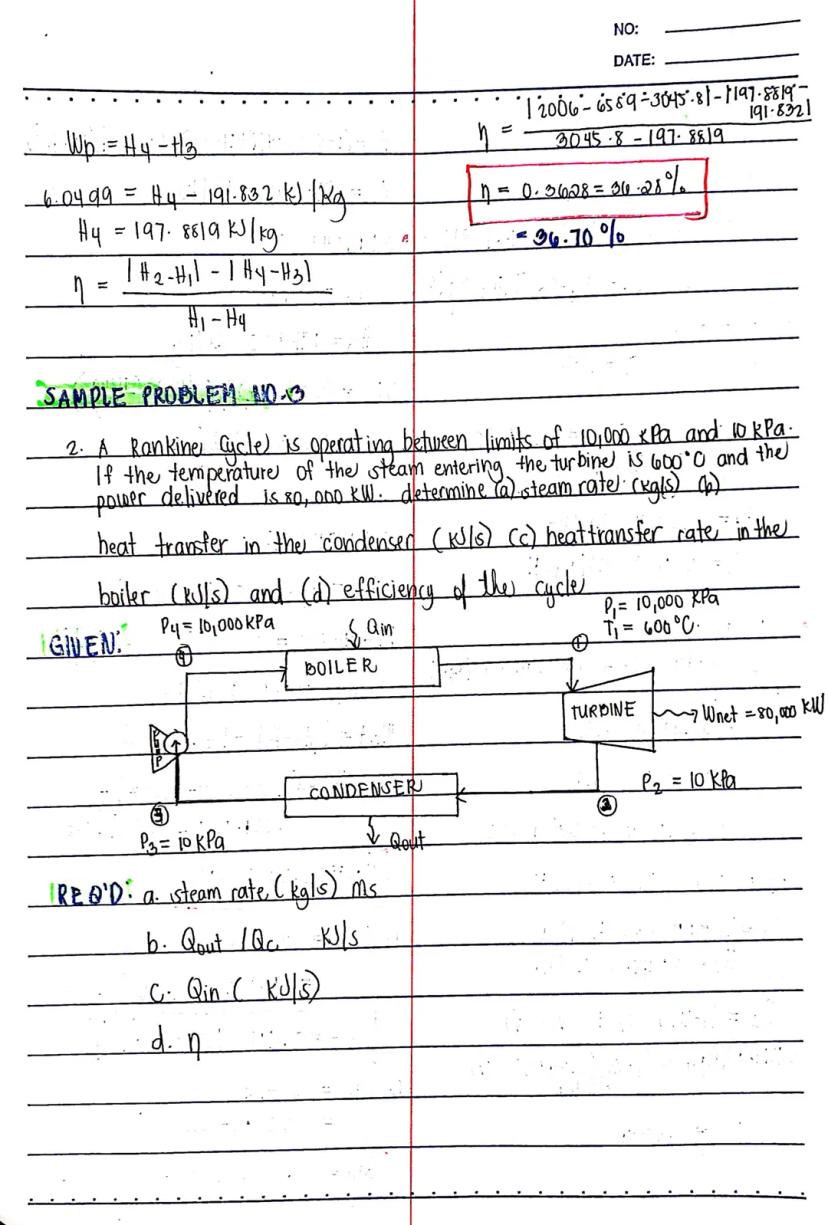 NO:
DATE:
Wp = H4 - H3
6.0499 = H4 - 191.832 KJ/kg
H4 = 197.8819 KJ/kg
η = |H2-H1| - |H4-H3|
H1 - H4
η = |2006.6589-3045.8|-|197.8819-
191.832|
3045.8 - 197.8819
η = 0.3628 = 36.28%
= 36.70%
SAMPLE PROBLEM NO.3
2. A Rankine Cycle is operating between limits of 10,000 kPa and 10 kPa.
If the temperature of the steam entering the turbine is 600°C and the
power delivered is 80,000 KW. determine (a) steam rate (kg/s) (b)
heat transfer in the condenser (KJ/s) (c) heat transfer rate in the
boiler (KJ/s) and (d) efficiency of the cycle
GIVEN:
P4 = 10,000 kPa
Qin
P1 = 10,000 kPa
T1 = 600°C.
4
BOILER
1
TURBINE
Wnet = 80,000 KW
PUMP
CONDENSER
P2 = 10 KPa
3
2
P3 = 10 KPa
Qout
REQ'D: a. steam rate (kg/s) ṁs
b. Qout /Qc KJ/s
c. Qin ( KJ/s)
d. η